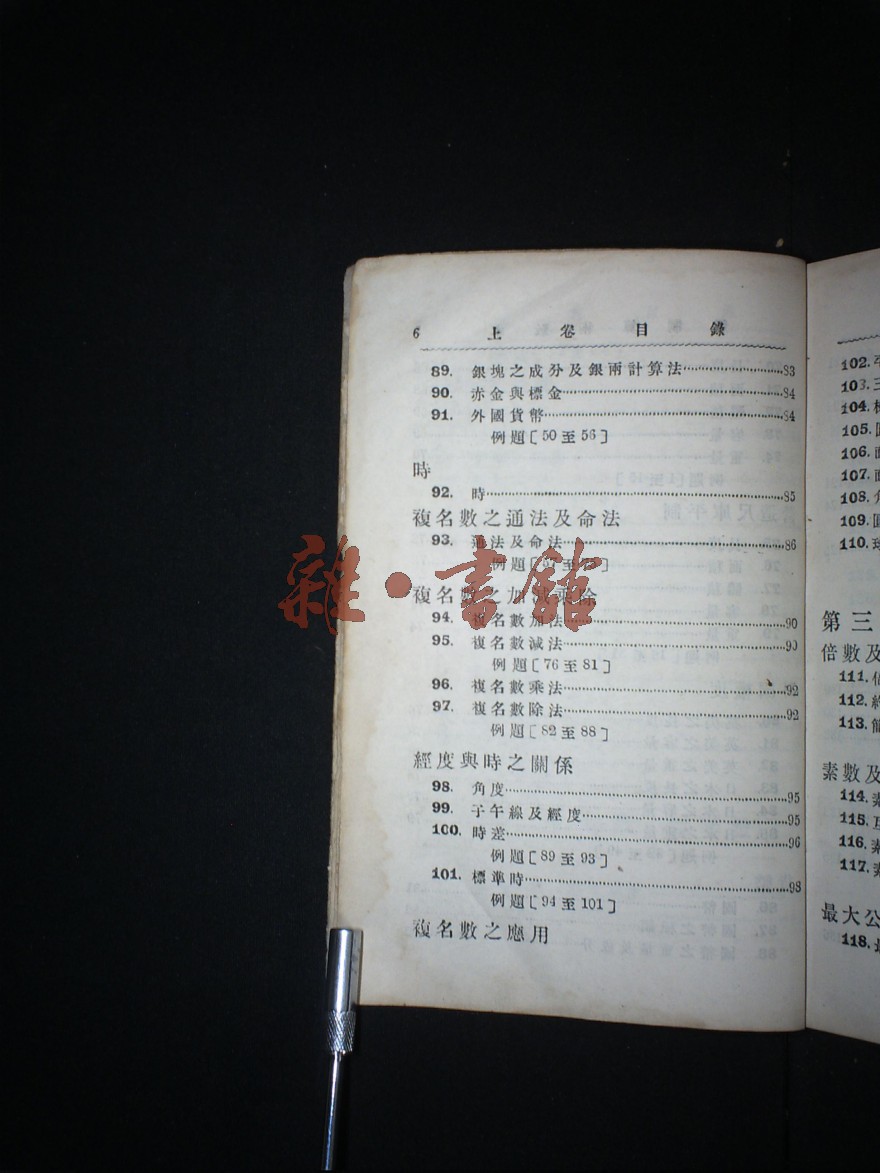 6 上卷 目錄
89. 銀塊之成分及銀兩計算法 83
90. 赤金與標金 84
91. 外國貨幣 84
例題〔50至56〕
時
92. 時 85
複名數之通法及命法
93. 通法及命法 86
例題
複名數之加減乘除
94. 複名數加法 90
95. 複名數減法 90
例題〔76至81〕
96. 複名數乘法 92
97. 複名數除法 92
例題〔82至88〕
經度與時之關係
98. 角度 95
99. 子午線及經度 95
100. 時差 96
例題〔89至93〕
101. 標準時 98
例題〔94至101〕
複名數之應用
雜·書館
102.
103. 三
104.
105. 圓
106. 面
107. 面
108. 角
109. 圓
110. 球
第三
倍數及
111. 倍
112. 約
113.
素數及
114. 素
115. 互
116. 素
117. 素
最大公
118. 最